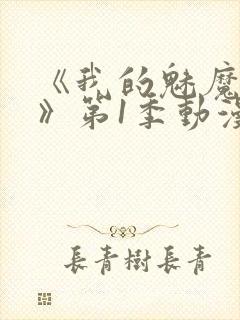 《我的魅魔
》第1季動漫
長青樹長青